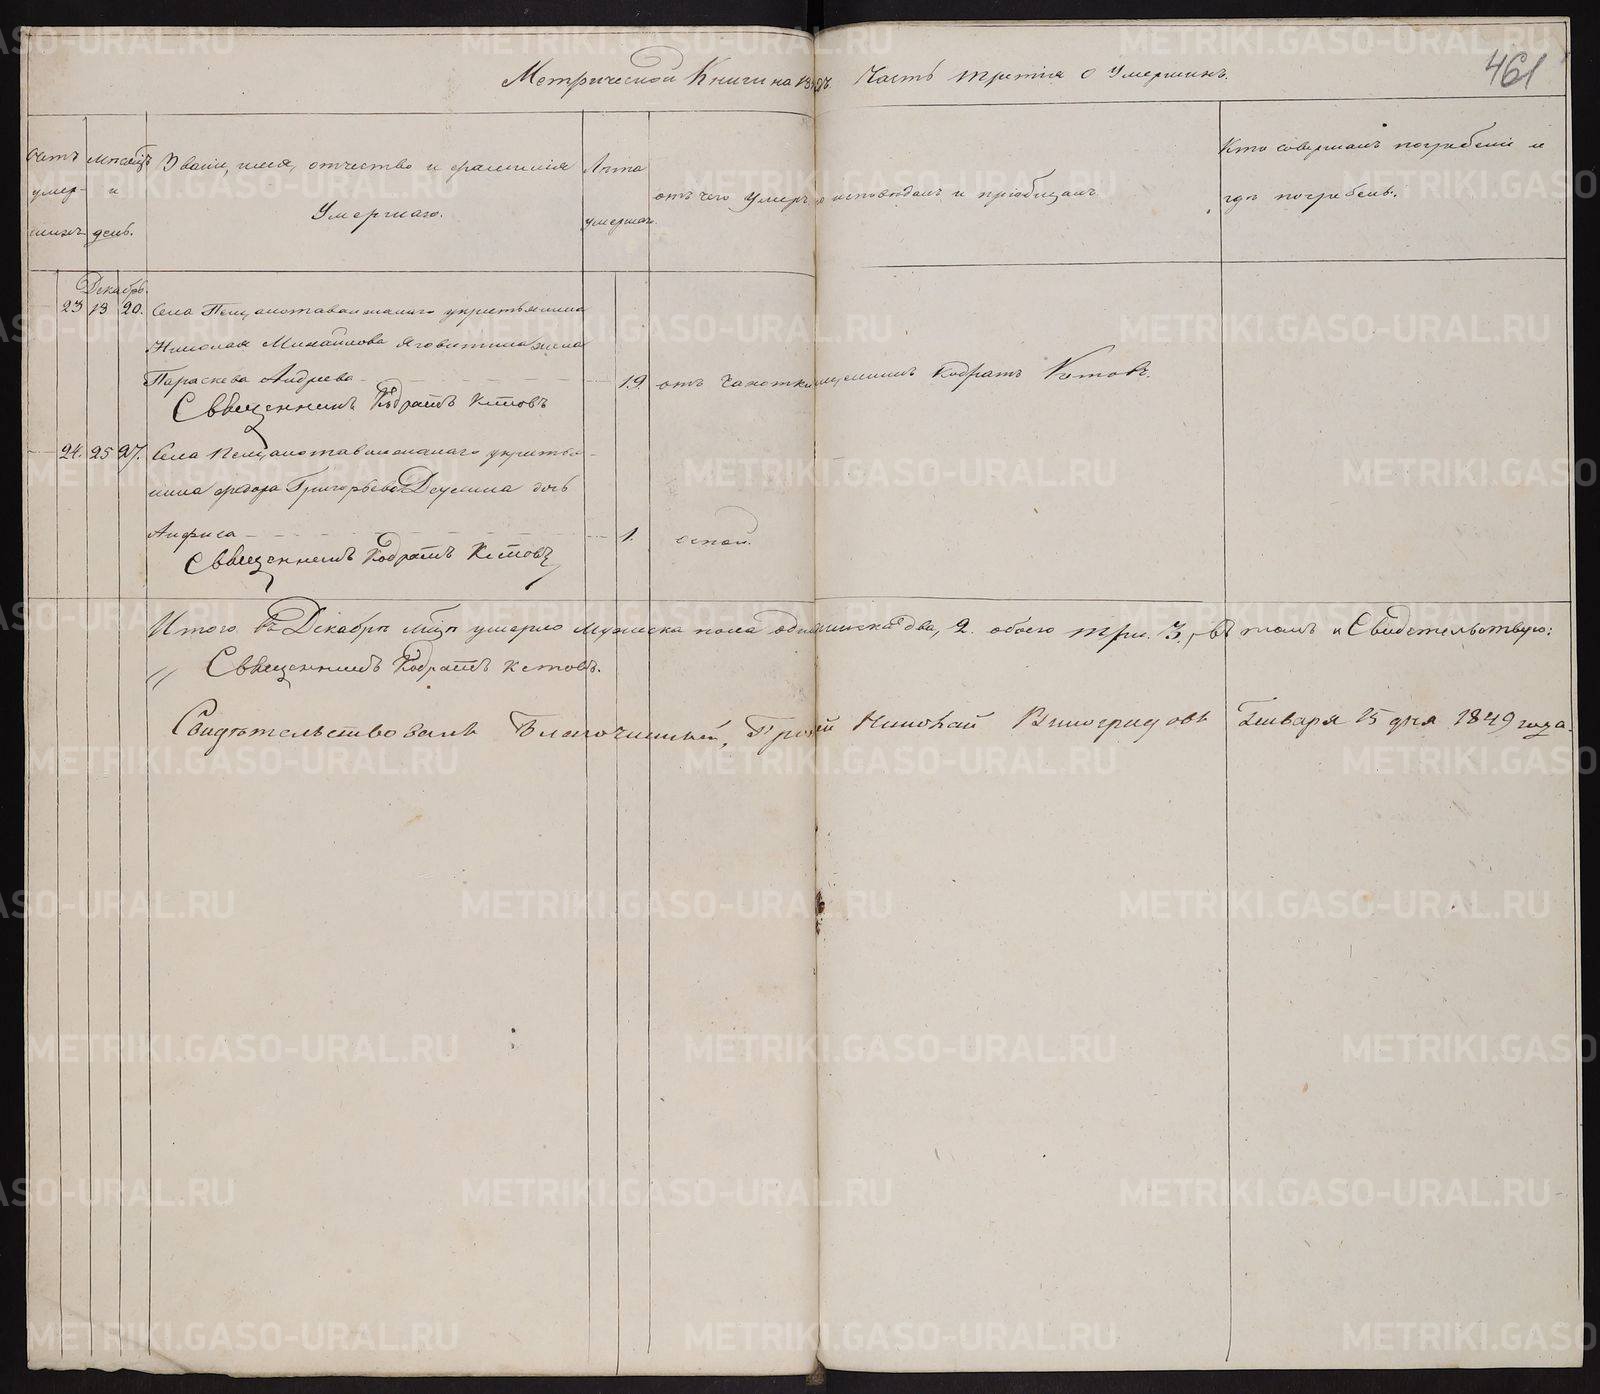 Метрической Книги на 1848 Часть третія о Умершихъ.
461
Счетъ умер- шихъ
Мѣсяцъ и день.
Званіе, имя, отчество и фамилія
Умершаго.
Лѣта
умершаго
отъ чего умеръ исповѣданъ и пріобщанъ.
Кто совершалъ погребеніе и
гдѣ погребенъ.
Декабрь.
23 13 20. Села
Николая Михайлова жена
Параскева Андреева 19 отъ чахотки Священникъ Кодратъ Кетовъ.
Священникъ Кодратъ Кетовъ
24. 25 27. Села
нина Федора Григорьева дочь
Анфиса 1. оспой.
Священникъ Кодратъ Кетовъ
Итого въ Декабрѣ мцѣ умерло мужеска пола одинъ женска два, 2. обоего три. 3, въ томъ и Свидетельствую:
Священникъ Кодратъ Кетовъ.
Свидѣтельствовалъ Благочинный, Николай Виноградовъ Генваря 15 дня 1849 года.
METRIKI.GASO-URAL.RU